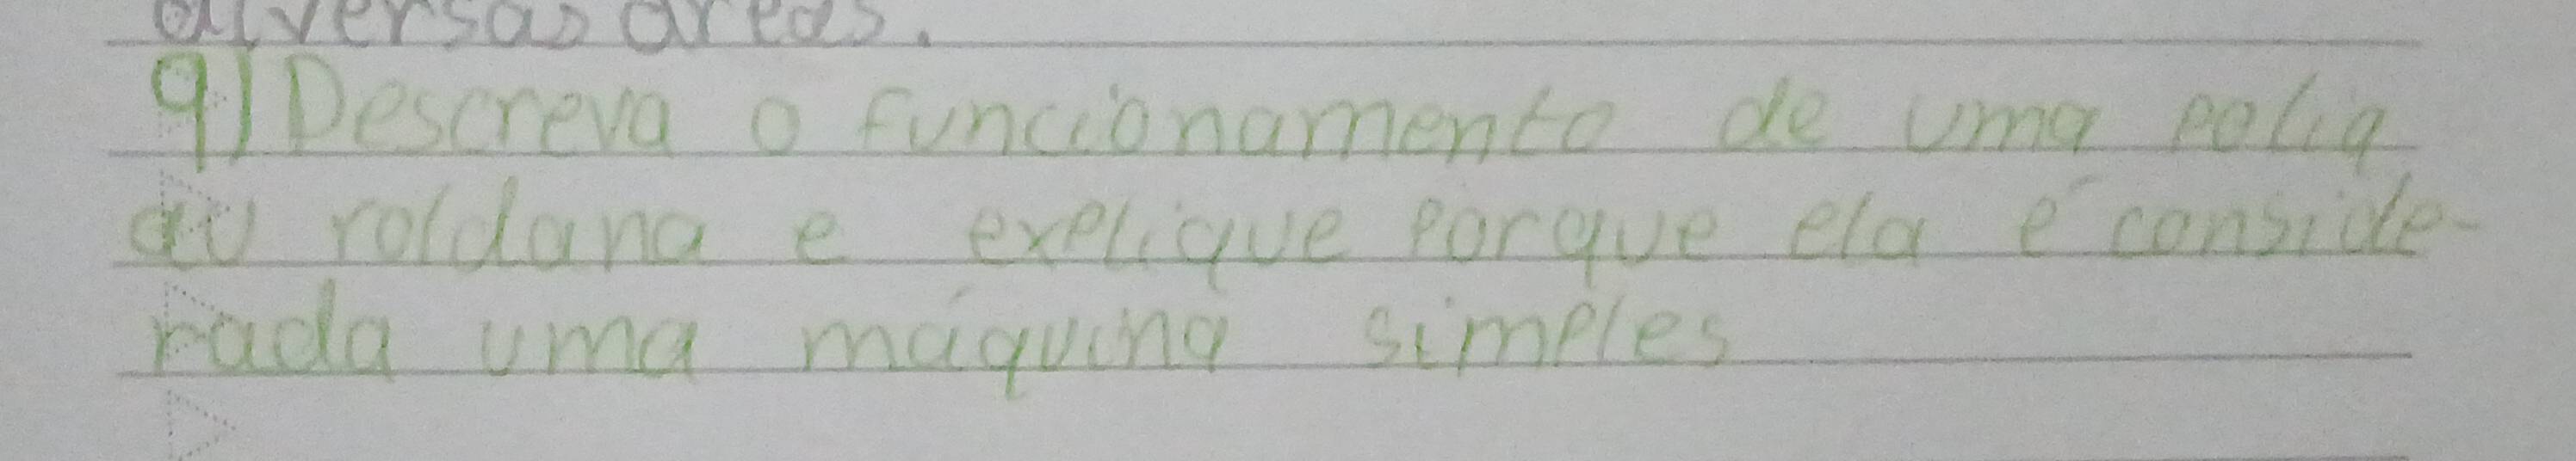 diversas áreas.
9) Descreva o funcionamento de uma polia
ou roldana e explique porque ela é conside-
rada uma máquina simples